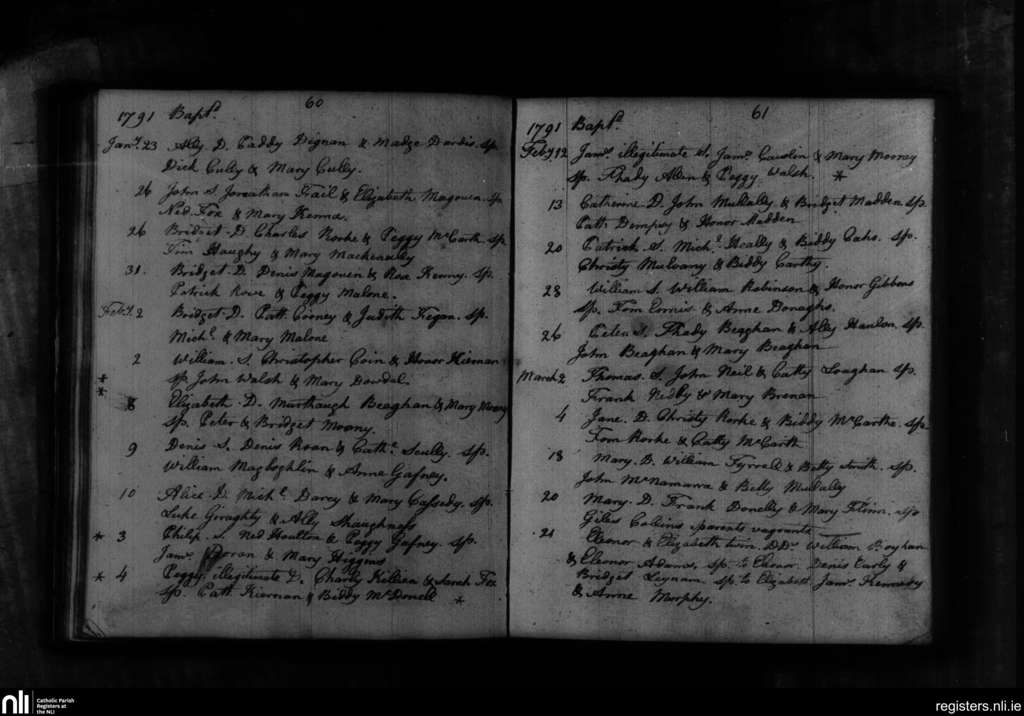 60
1791 Bapt.d
Jan.y 23 Ally D. Paddy Dignan & Madge Dardis. sp.
Dick Cully & Mary Cully.
26 John S. Jonathan Fail & Elizabeth Magouen. sp.
Ned Fox & Mary Kenna.
26 Bridget D. Charles Rorke & Peggy McCarth. sp.
Tim Haughy & Mary
31. Bridget D. Denis Magouen & Rose Kenny. sp.
Patrick Rowe & Peggy Malone.
Feb.y 2 Bridget D. Patt. Cooney & Judith Fegan. sp.
Mich.l & Mary Malone
2 William. S. Christopher Coin & Honor Kiernan
* sp. John Walsh & Mary Dowdal.
* 8 Elizabeth D. Murthaugh Beaghan & Mary Moony
sp. Peter & Bridget Moony.
9 Denis S. Denis Roan & Cath.e Scully. sp.
William Magloghlin & Anne Gafney.
10 Alice D. Mich.l Darcy & Mary Cassedy. sp.
Luke Geraghty & Ally Shaughness
* 3 Philip. S. Ned Houlton & Peggy Gafney. sp.
Jam.s Doran & Mary Higgins
* 4 Peggy, illegitimate D. Charly Killian & Sarah Fox
sp. Patt Kiernan & Biddy McDonell *
61
1791 Bapt.d
Feb.y 12 Jam.s illegitimate S. Jam.s & Mary Mooney
sp. Thady Allen & Peggy Walsh. *
13 Catherine D. John Mullally & Bridget Madden. sp.
Patt. Dempsy & Honor Madden
20 Patrick S. Mich.l Heally & Biddy sp.
Christy Mulvany & Biddy Carthy.
28 William S. William Robinson & Honor Gibbons
sp. Tom & Anne Donaghs.
26 Peter S. Thady Beaghan & Ally Hanlon. sp.
John Beaghan & Mary Beaghan
March 2 Thomas. S. John Neil & Catty Loughan sp.
Frank & Mary Brenan
4 Jane. D. Christy Rorke & Biddy McCarthe. sp.
Tom Rorke & Catty McCarth
18 Mary. D. William Tyrrell & Betty Smith. sp.
John McNamarra & Betty Mullally
20 Mary. D. Frank Donelly & Mary Flinn. sp.
Giles Collins parents vagrants
21 Eleonor & Elizabeth twin. DD.s William
& Eleonor Adams, sp. to Eleonor. Denis Carly &
Bridget Leynam sp. to Elizabeth Jam.s Kennedy
& Anne Morphy.
nli
Catholic Parish
Registers at
the NLI
registers.nli.ie